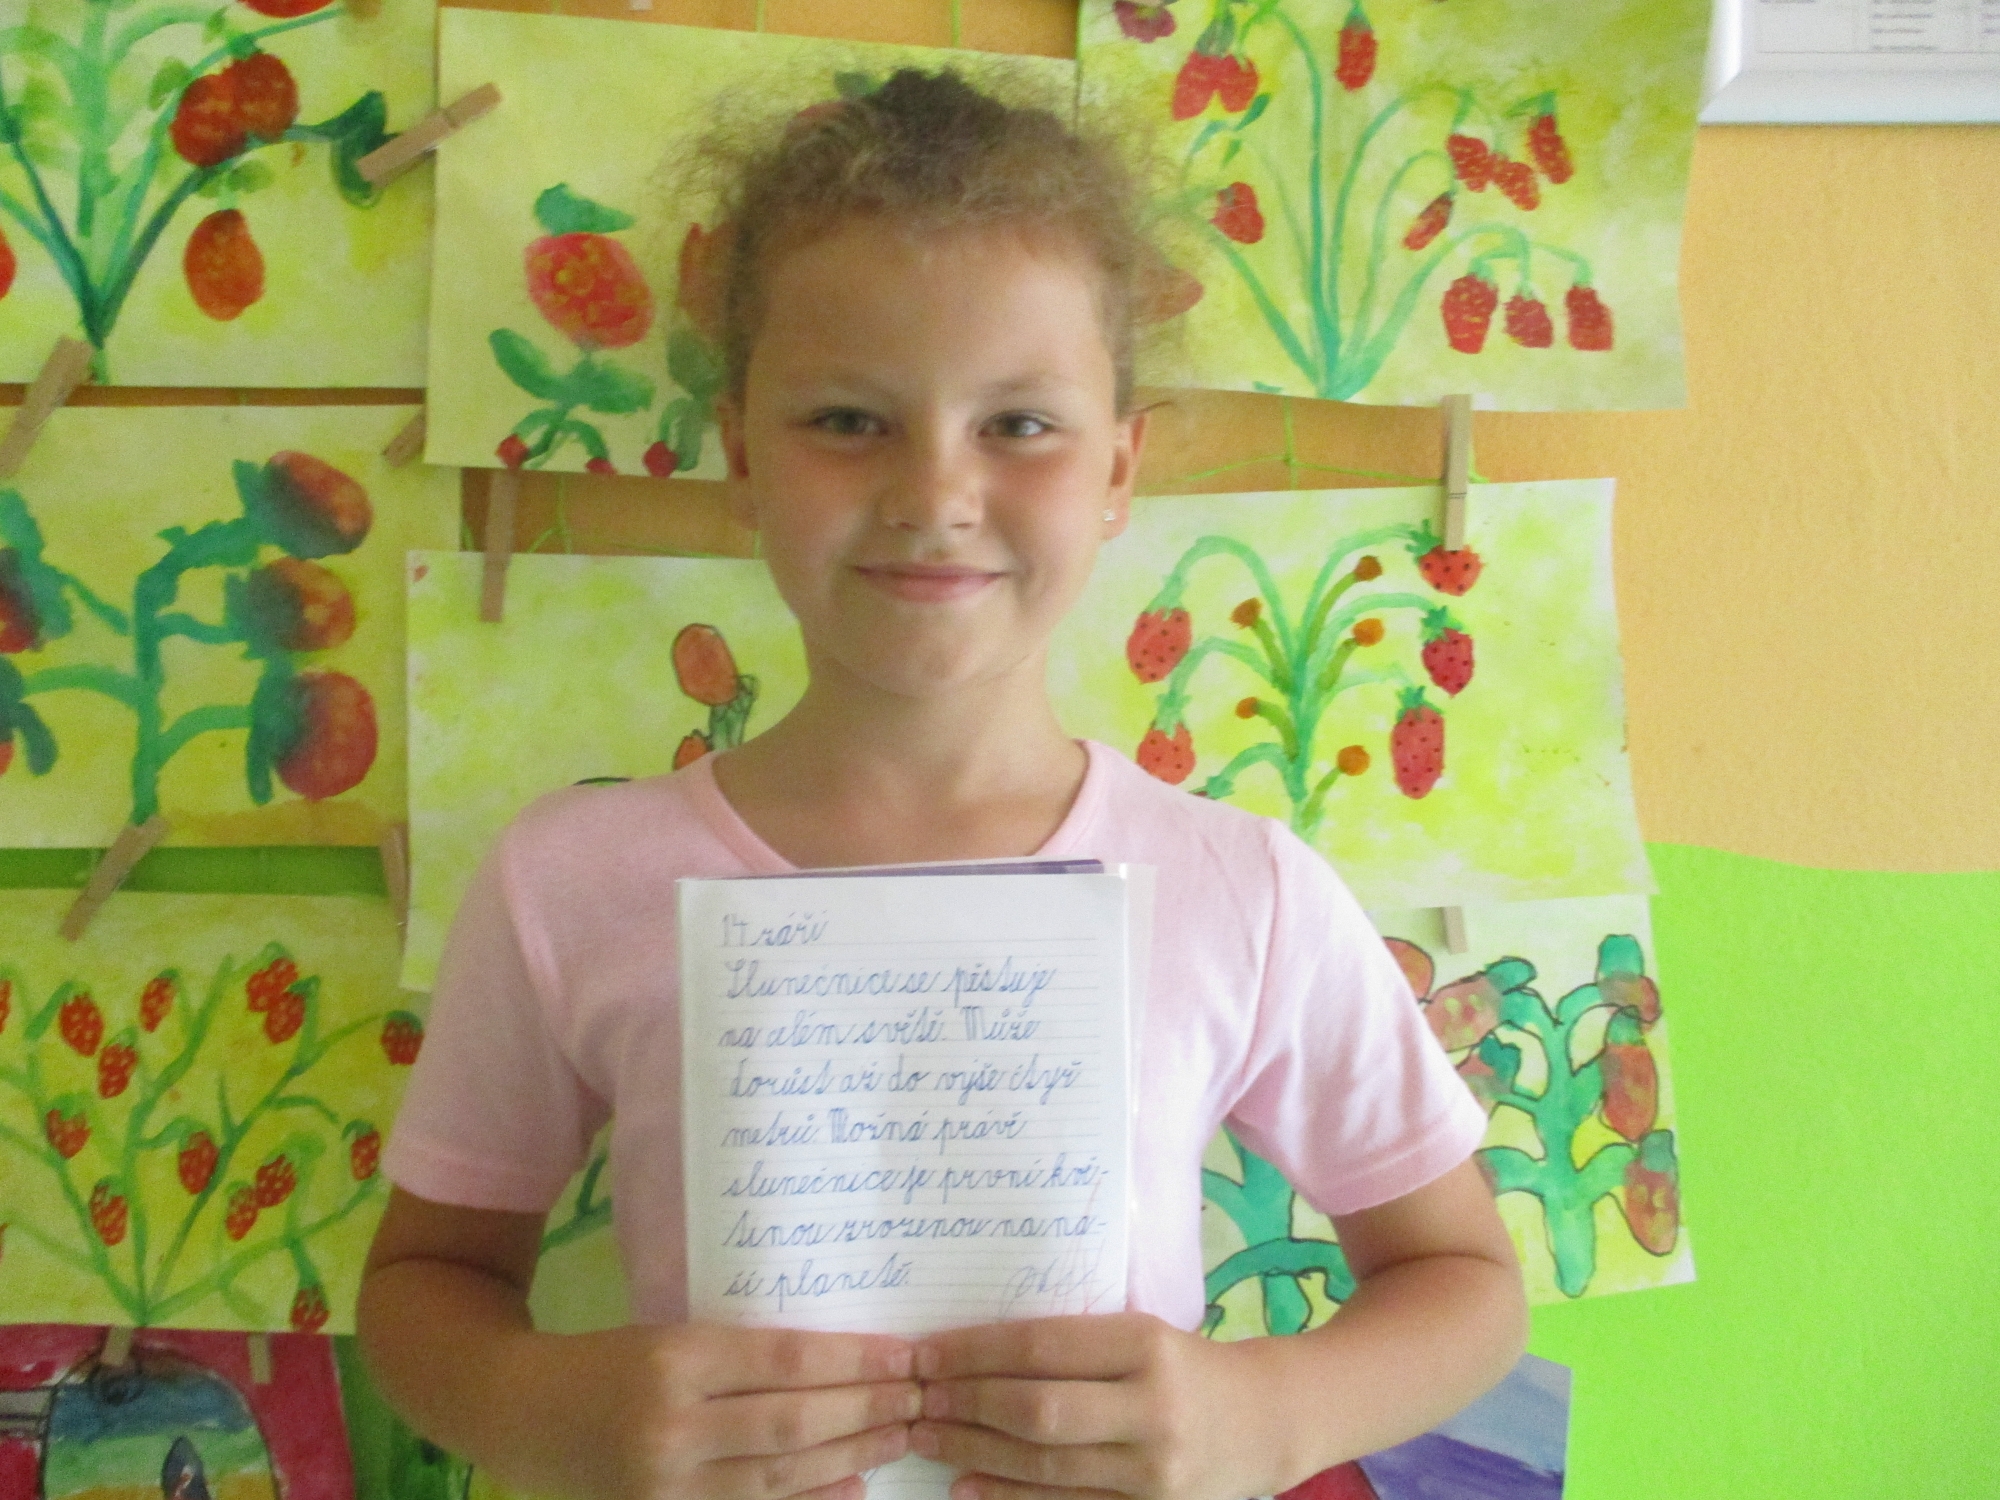 14 září
Slunečnice se pěstuje
na celém světě. Může
dorůst až do výše čtyř
metrů. Možná právě
slunečnice je první kvě-
tinou zrozenou na na-
ší planetě.